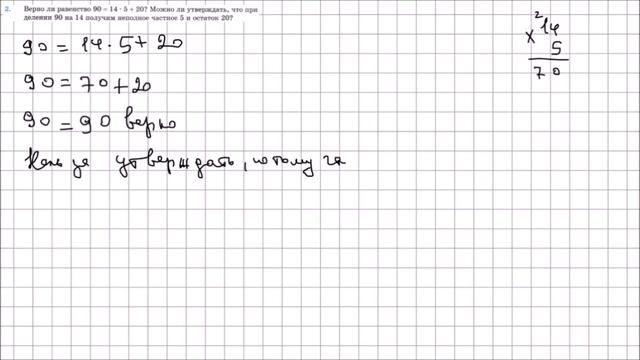 2. Верно ли равенство 90 = 14 · 5 + 20? Можно ли утверждать, что при
делении 90 на 14 получим неполное частное 5 и остаток 20?
90 = 14 · 5 + 20
90 = 70 + 20
90 = 90 верно
Нельзя утверждать, потому чт
2
14
× 5
70